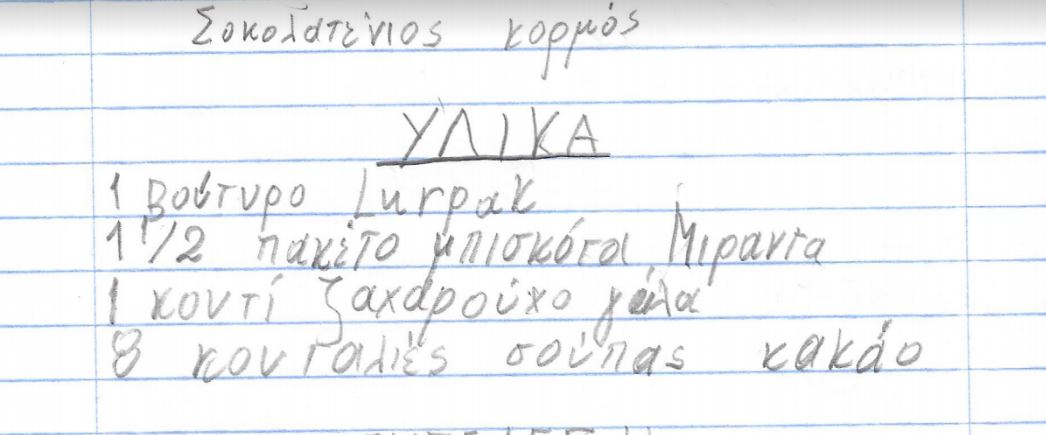 Σοκολατένιος κορμός
ΥΛΙΚΑ
1 Βούτυρο Lurpak
1 1/2 πακέτο μπισκότα Μιράντα
1 κουτί ζαχαρούχο γάλα
8 κουταλιές σούπας κακάο